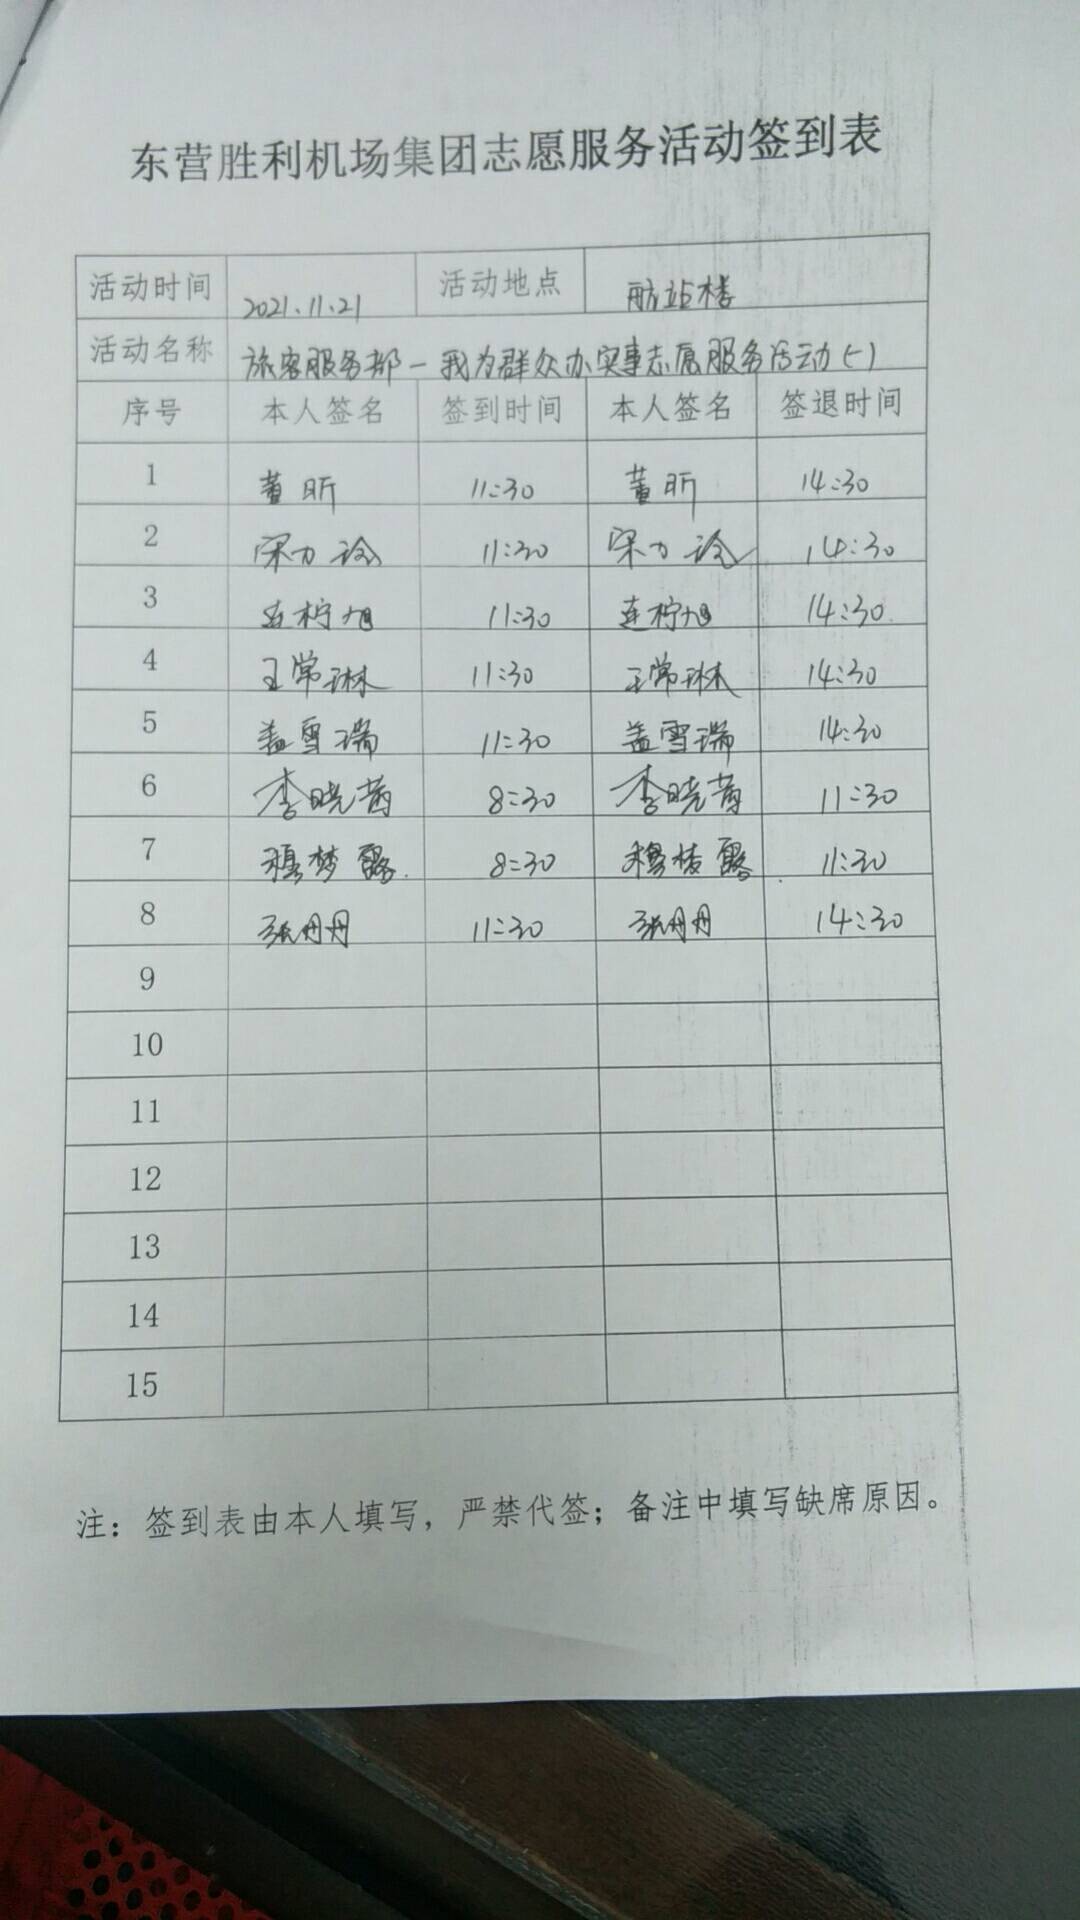 东营胜利机场集团志愿服务活动签到表
活动时间 2021.11.21 活动地点 航站楼
活动名称 旅客服务部-我为群众办实事志愿服务活动(一)
序号 本人签名 签到时间 本人签名 签退时间
1 董昕 11:30 董昕 14:30
2 11:30 14:30
3 连柠旭 11:30 连柠旭 14:30
4 王常琳 11:30 王常琳 14:30
5 盖雪瑞 11:30 盖雪瑞 14:30
6 李晓 8:30 李晓 11:30
7 穆梦露 8:30 穆梦露 11:30
8 张丹丹 11:30 张丹丹 14:30
9
10
11
12
13
14
15
注：签到表由本人填写，严禁代签；备注中填写缺席原因。